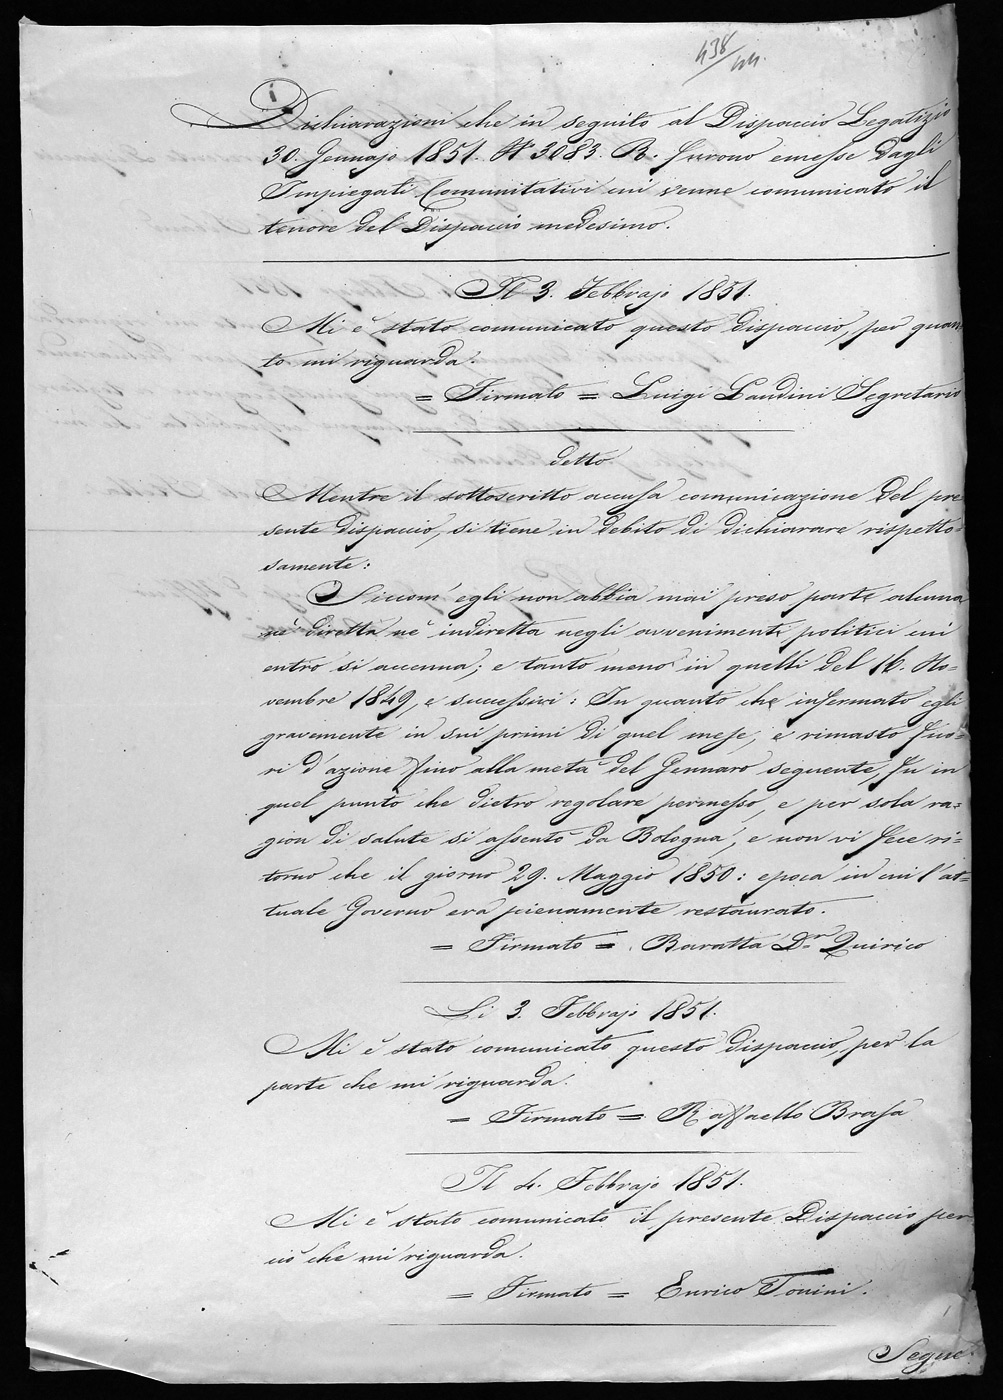 438/44.
Dichiarazioni che in seguito al Dispaccio Legatizio
30. Gennajo 1851. N 3083. R. furono emesse dagli
Impiegati Comunitativi cui venne comunicato il
tenore del Dispaccio medesimo.
Il 3. Febbrajo 1851.
Mi è stato comunicato questo dispaccio, per quan-
to mi riguarda.
= Firmato = Luigi Landini Segretario
detto
Mentre il sottoscritto accusa comunicazione del pre
sente dispaccio, si tiene in debito di dichiarare rispetto-
samente:
Siccom' egli non abbia mai preso parte alcuna
nè diretta nè indiretta negli avvenimenti politici cui
entro si accenna; e tanto meno in quelli del 16. No-
vembre 1849, e successivi: In quanto che infermato egli
gravemente in sui primi di quel mese, è rimasto fuo-
ri d'azione fino alla metà del Gennaro seguente, fu in
quel punto che dietro regolare permesso, e per sola ra-
gion di salute si assentò da Bologna, e non vi fece ri-
torno che il giorno 29. Maggio 1850: epoca in cui l'at-
tuale Governo era pienamente restaurato.
= Firmato = Baratta Dr. Quirico
Li 3. Febbrajo 1851.
Mi è stato comunicato questo dispaccio, per la
parte che mi riguarda.
= Firmato = Raffaello Brasa
Il 4. Febbrajo 1851.
Mi è stato comunicato il presente Dispaccio per
ciò che mi riguarda.
= Firmato = Enrico Tonini.
Segue